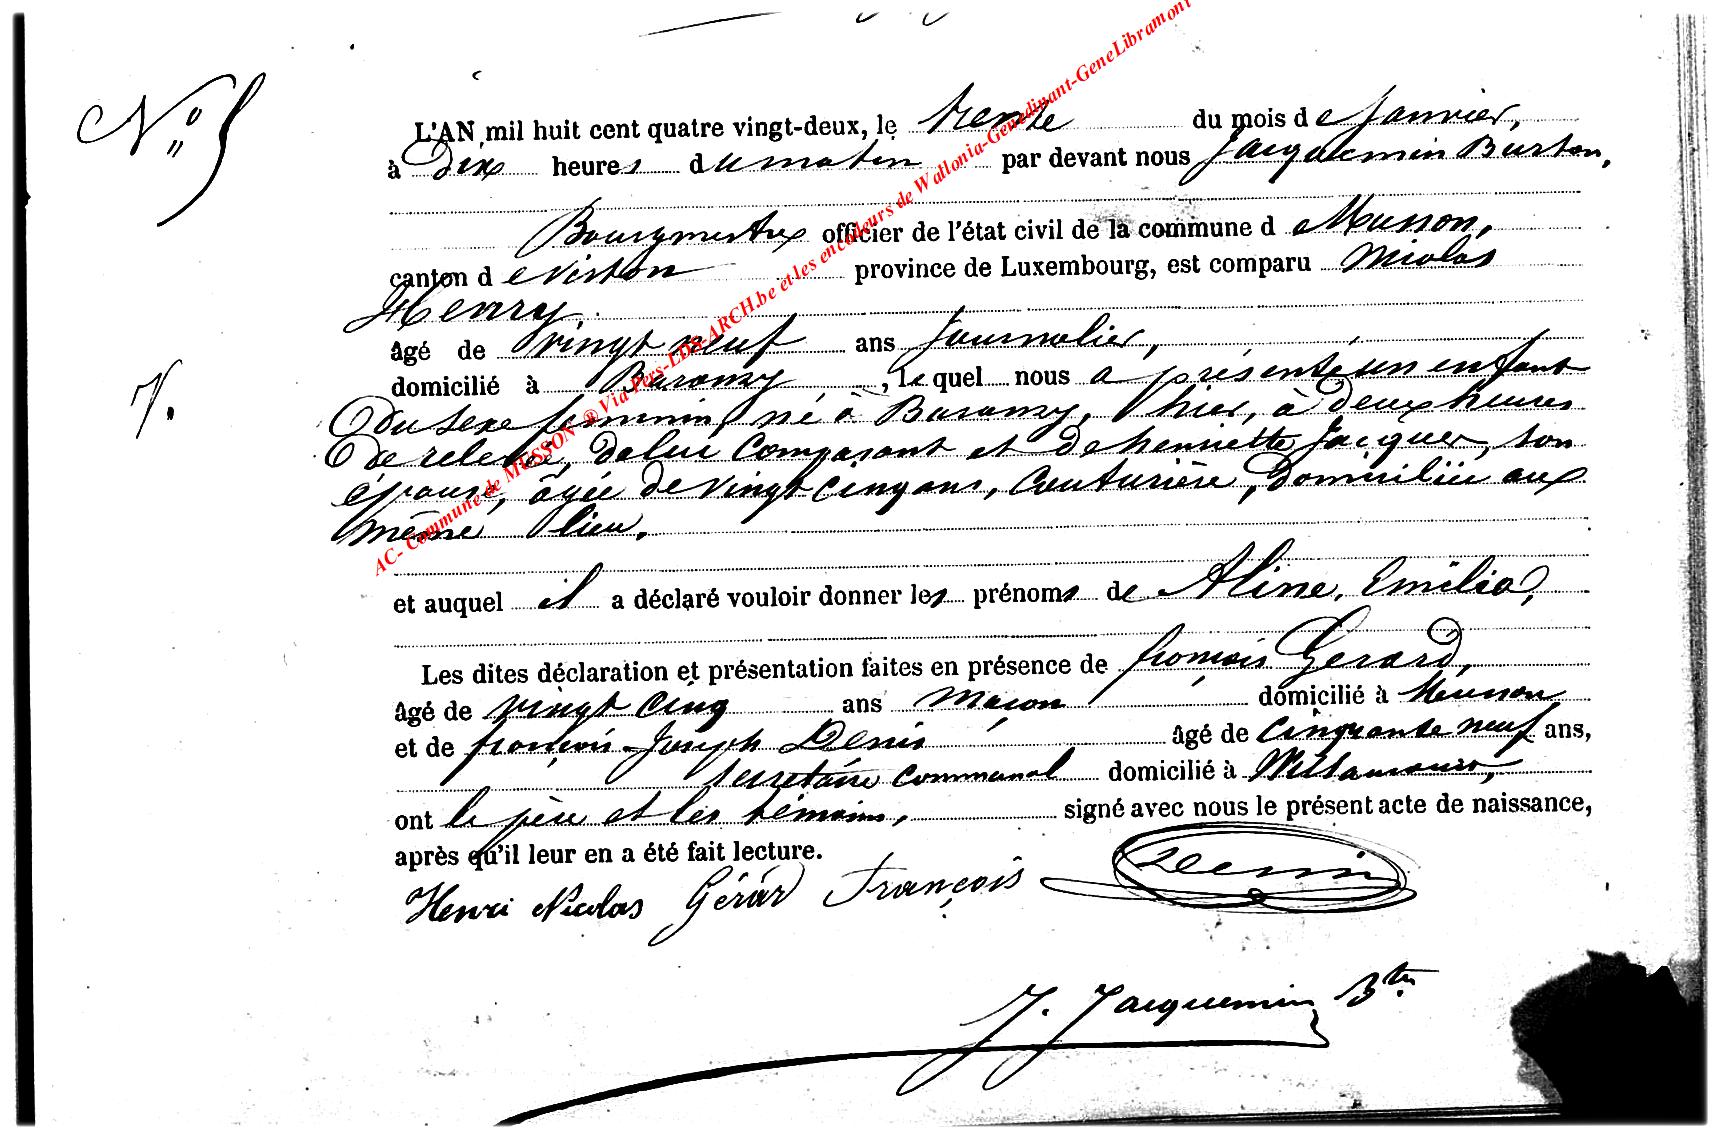 N° 5
L'AN mil huit cent quatre vingt-deux, le trente du mois de Janvier,
à Dix heures du matin par devant nous Jacquemin Burton,
Bourgmestre officier de l'état civil de la commune de Musson,
canton de Virton province de Luxembourg, est comparu Nicolas
Henry,
âgé de vingt neuf ans Journalier,
domicilié à Baranzy, lequel nous a présenté un enfant
7.
Du sexe féminin, né à Baranzy, hier, à deux heures
De relevée, de lui Comparant et de henriette Jacques, son
épouse, âgée de vingt cinq ans, Couturière, Domiciliée aux
même lieu.
et auquel il a déclaré vouloir donner les prénoms de Aline, Emélia,
Les dites déclaration et présentation faites en présence de françois Gérard,
âgé de vingt cinq ans Maçon domicilié à Musson
et de françois-Joseph Denis âgé de cinquante neuf ans,
secrétaire communal domicilié à
ont le père et les témoins, signé avec nous le présent acte de naissance,
après qu'il leur en a été fait lecture.
Henri Nicolas Gérar François Denis
J. Jacquemin Btn.
AC- Commune de MUSSON ® Via Pers-LDS-ARCH.be et les encodeurs de Wallonia-Genedinant-GeneLibramont